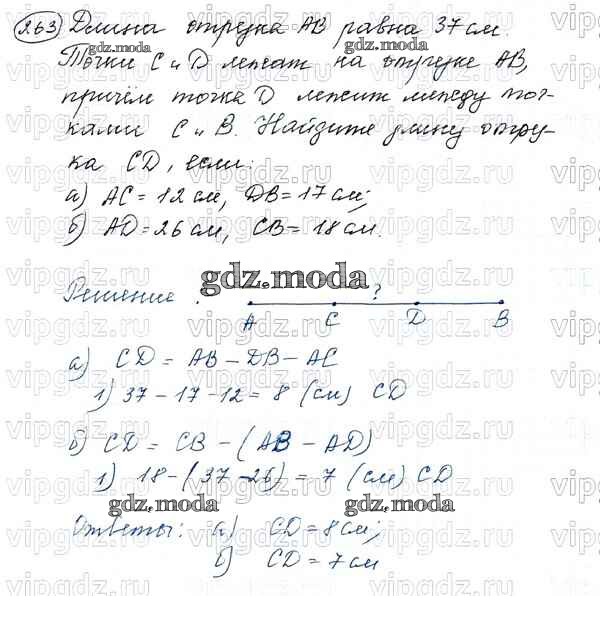 263) Длина отрезка AB равна 37 см.
Точки C и D лежат на отрезке AB,
причём точка D лежит между точ-
ками C и B. Найдите длину отрез-
ка CD, если:
а) AC = 12 см, DB = 17 см;
б) AD = 26 см, CB = 18 см.
gdz.moda
Решение . ?
A C D B
а) CD = AB - DB - AC
1) 37 - 17 - 12 = 8 (см) CD
б) CD = CB - (AB - AD)
1) 18 - (37 - 26) = 7 (см) CD
gdz.moda gdz.moda
Ответы: а) CD = 8 см;
б) CD = 7 см
vipgdz.ru